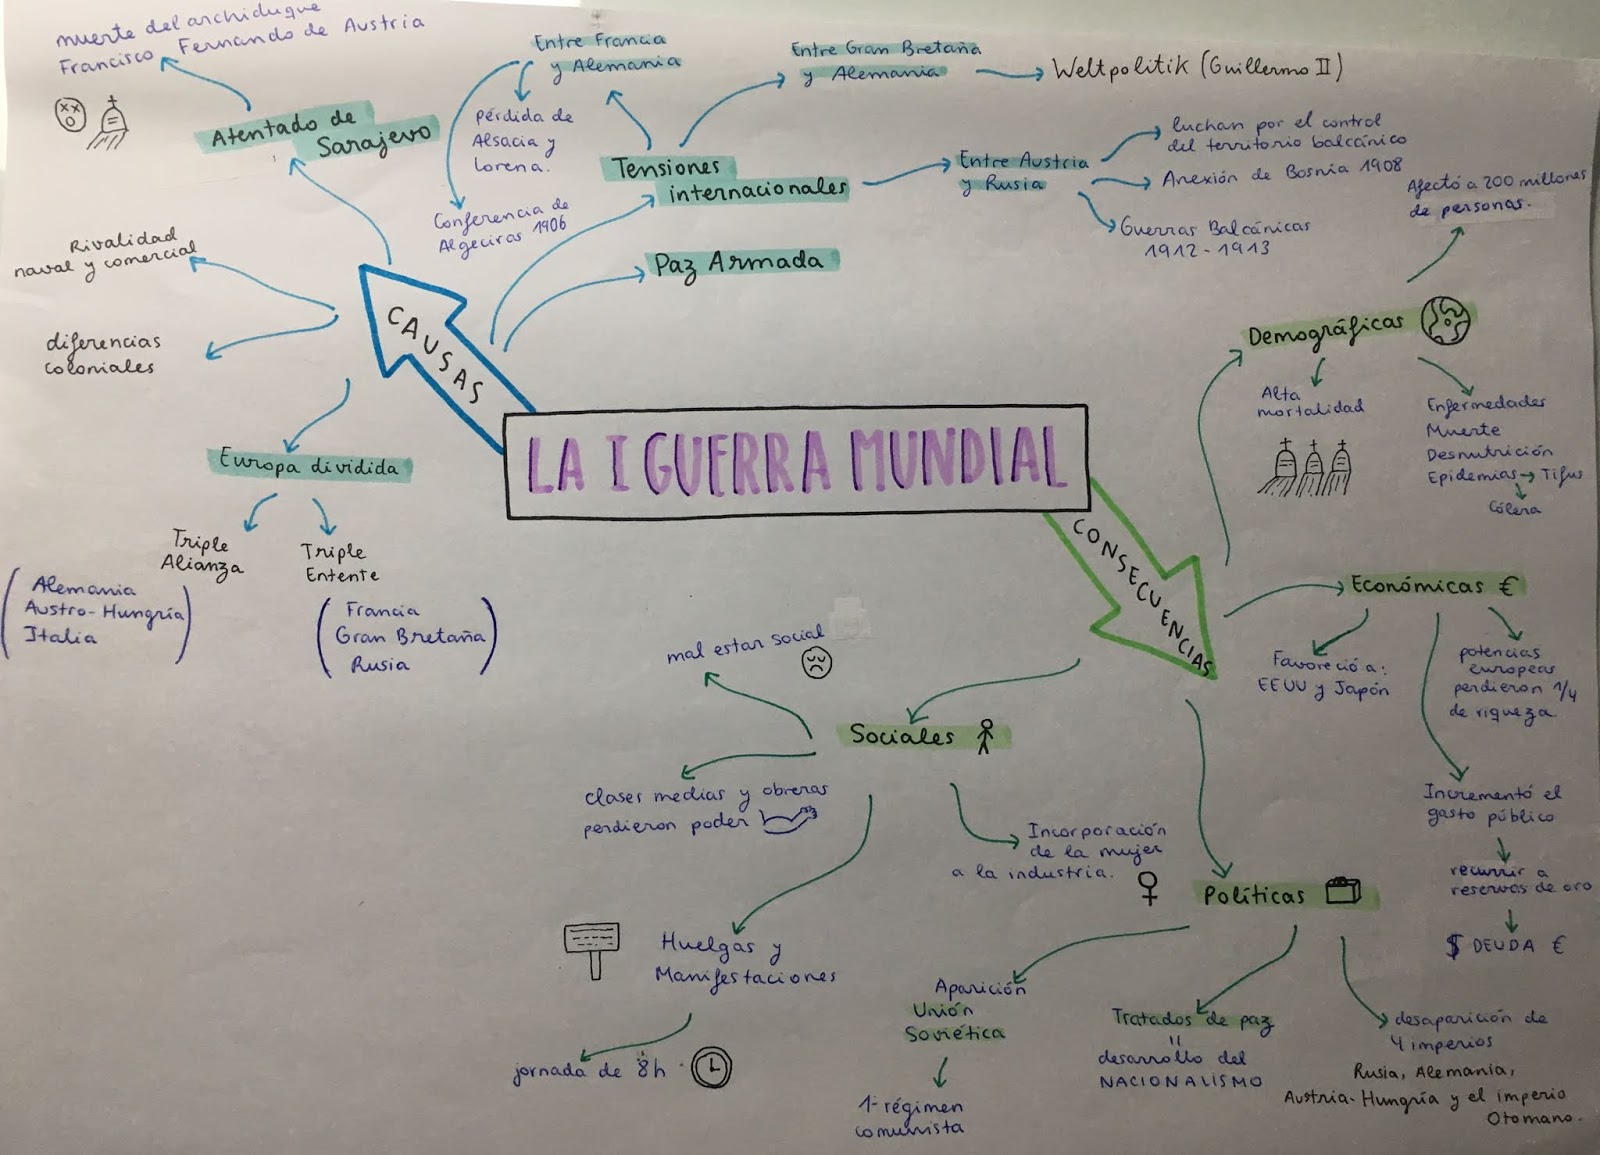 muerte del archiduque
Francisco Fernando de Austria
Atentado de
Sarajevo
Entre Francia
y Alemania
pérdida de
Alsacia y
Lorena.
Conferencia de
Algeciras 1906
Entre Gran Bretaña
y Alemania
Weltpolitik (Guillermo II)
Tensiones
internacionales
Entre Austria
y Rusia
luchan por el control
del territorio balcánico
Anexión de Bosnia 1908
Guerras Balcánicas
1912-1913
Paz Armada
Rivalidad
naval y comercial
diferencias
coloniales
CAUSAS
Europa dividida
Triple
Alianza
(Alemania
Austro-Hungría
Italia)
Triple
Entente
(Francia
Gran Bretaña
Rusia)
LA I GUERRA MUNDIAL
CONSECUENCIAS
Afectó a 200 millones
de personas.
Demográficas
Alta
mortalidad
Enfermedades
Muerte
Desnutrición
Epidemias → Tifus
Cólera
Económicas €
Favoreció a:
EEUU y Japón
potencias
europeas
perdieron 1/4
de riqueza
Incrementó el
gasto público
recurrir a
reservas de oro
$ DEUDA €
Sociales
mal estar social
clases medias y obreras
perdieron poder
Incorporación
de la mujer
a la industria.
Huelgas y
Manifestaciones
jornada de 8h
Políticas
Aparición
Unión
Soviética
1º régimen
comunista
Tratados de paz
=
desarrollo del
NACIONALISMO
desaparición de
4 imperios
Rusia, Alemania,
Austria-Hungría y el imperio
Otomano.